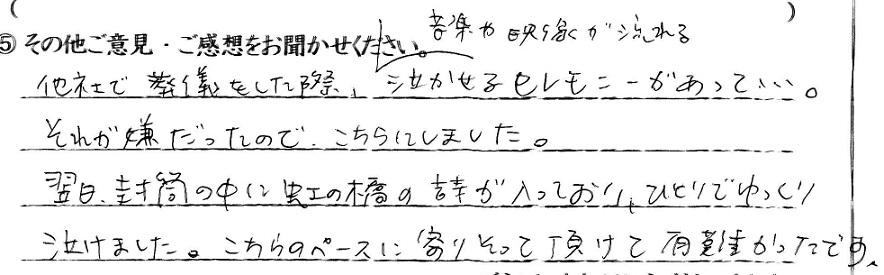 (　　　)
⑤ その他ご意見・ご感想をお聞かせください。
音楽や映像が流れる
他社で葬儀をした際、泣かせるセレモニーがあって…。
それが嫌だったので、こちらにしました。
翌日、封筒の中に虹の橋の詩が入っており、ひとりでゆっくり
泣けました。こちらのペースに寄りそって頂けて有難かったです。